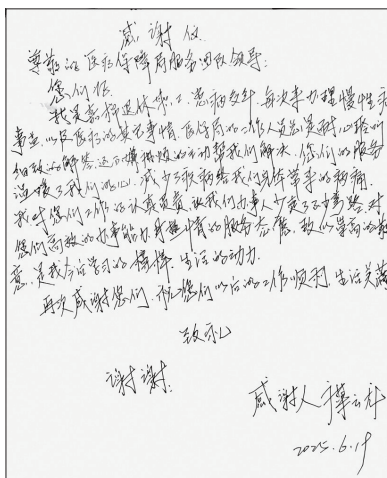 感谢信
尊敬的医疗保障局服务团队领导:
您们好
我是高桥退休职工,患病多年,每次来办理慢性病
事宜,以及医疗的其它事情,医保局的工作人员总是耐心琐
细致的解答,还不嫌麻烦的主动帮我们解决,您们的服务
温暖了我们的心,减少了疾病给我们患者带来的病痛.
我对您们工作的认真负责,让我们办事人少走了不少弯路,对
您们高效的办事能力,有温情的服务态度,致以崇高的敬
意,是我今后学习的榜样,生活的动力.
再次感谢您们,祝您们以后的工作顺利,生活美满
致礼
谢谢:
感谢人
2025.6.19